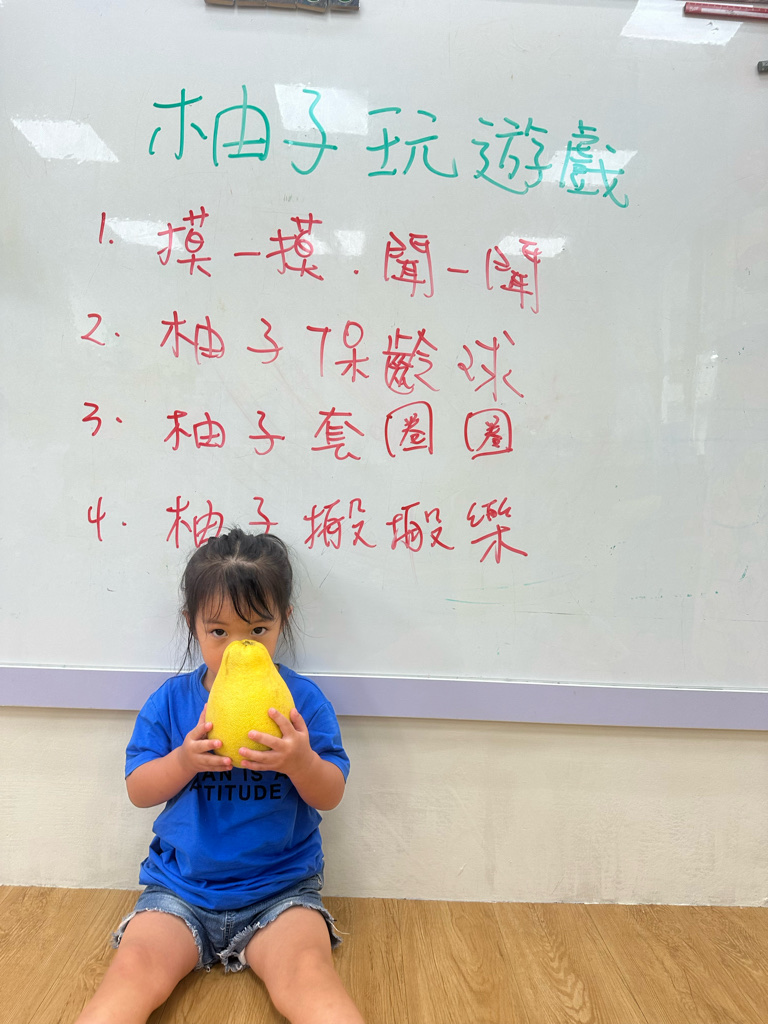 柚子玩遊戲
1. 摸一摸.聞一聞
2. 柚子保齡球
3. 柚子套圈圈
4. 柚子搬搬樂
AN IS A
TITUDE